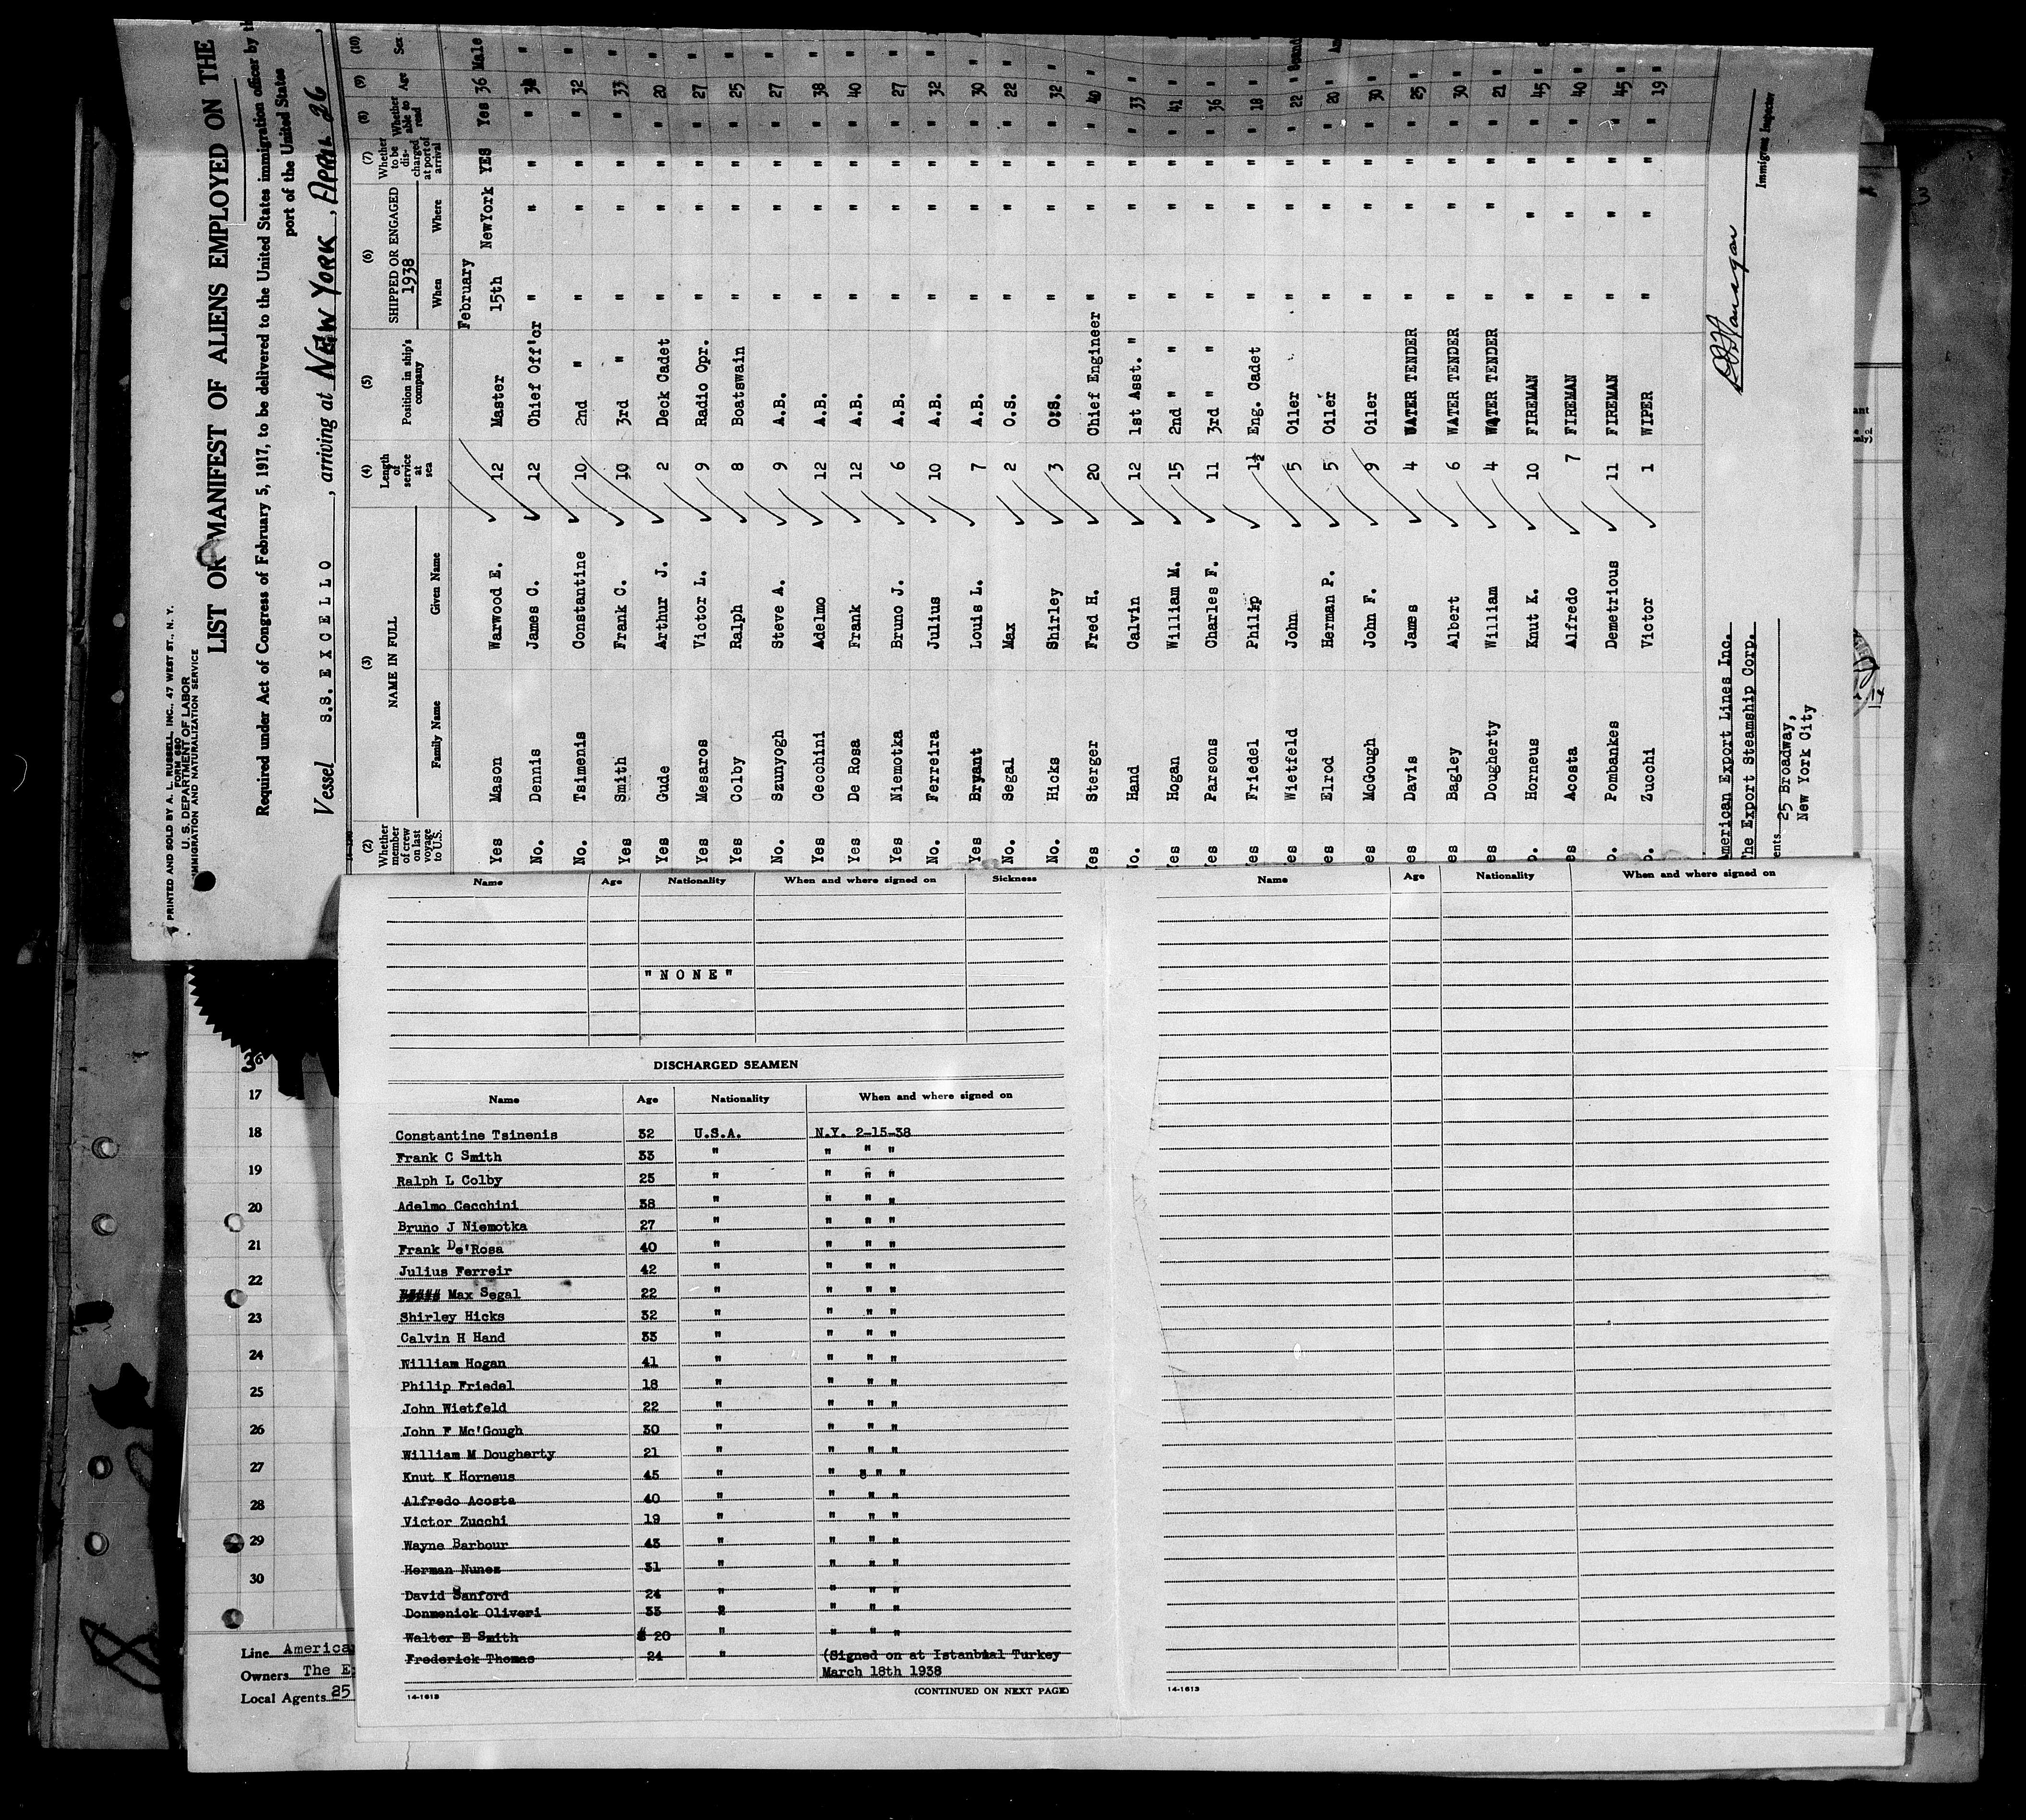 PRINTED AND SOLD BY A. L. RUSSELL, INC., 47 WEST ST., N. Y.
FORM 680
U. S. DEPARTMENT OF LABOR
IMMIGRATION AND NATURALIZATION SERVICE
LIST OR MANIFEST OF ALIENS EMPLOYED ON THE
Required under Act of Congress of February 5, 1917, to be delivered to the United States immigration officer by th
port of the United States
Vessel S.S. EXCELLO, arriving at NEW YORK, APRIL 26,
(2) (3) (4) (5) (6) (7) (8) (9) (10)
Whether member of crew on last voyage to U.S. NAME IN FULL Family Name Given Name Length of service at sea Position in ship's company SHIPPED OR ENGAGED 1938 When Where Whether to be discharged at port of arrival Whether able to read Age Sex
February
Yes Mason Warwood E. 12 Master 15th NewYork YES Yes 36 Male
No. Dennis James C. 12 Chief Off'or " " " " "
No. Tsimenis Constantine 10 2nd " " " " " 32 "
Yes Smith Frank C. 10 3rd " " " " " 33 "
Yes Gude Arthur J. 2 Deck Cadet " " " " 20 "
Yes Mesaros Victor L. 9 Radio Opr. " " " " 27 "
Yes Colby Ralph 8 Boatswain " " " " 25 "
No. Szunyogh Steve A. 9 A.B. " " " " 27 "
Yes Cecchini Adelmo 12 A.B. " " " " 38 "
Yes De Rosa Frank 12 A.B. " " " " 40 "
Yes Niemotka Bruno J. 6 A.B. " " " " 27 "
No. Ferreira Julius 10 A.B. " " " " 32 "
Yes Bryant Louis L. 7 A.B. " " " " 30 "
No. Segal Max 2 O.S. " " " " 22 "
No. Hicks Shirley 3 O.S. " " " " 32 "
es Sterger Fred H. 20 Chief Engineer " " " " 40 "
o. Hand Calvin 12 1st Asst. " " " " " 33 "
es Hogan William M. 15 2nd " " " " " 41 "
es Parsons Charles F. 11 3rd " " " " " 36 "
es Friedel Philip 1½ Eng. Cadet " " " " 18 "
es Wietfeld John 5 Oiler " " " " 22 "
es Elrod Herman P. 5 Oiler " " " " 20 "
es McGough John F. 9 Oiler " " " " 30 "
es Davis James 4 WATER TENDER " " " " 25 "
es Bagley Albert 6 WATER TENDER " " " " 30 "
es Dougherty William 4 WATER TENDER " " " " 21 "
o. Horneus Knut K. 10 FIREMAN " " " " 45 "
es Acosta Alfredo 7 FIREMAN " " " " 40 "
o. Pombankes Demetrious 11 FIREMAN " " " " 45 "
o. Zucchi Victor 1 WIPER " " " " 19 "
American Export Lines Inc.
The Export Steamship Corp.
ents 25 Broadway,
New York City
Immigrant Inspector
Name Age Nationality When and where signed on Sickness
"NONE"
DISCHARGED SEAMEN
Name Age Nationality When and where signed on
Constantine Tsinenis 32 U.S.A. N.Y. 2-15-38
Frank C Smith 33 " " " "
Ralph L Colby 25 " " " "
Adelmo Cecchini 38 " " " "
Bruno J Niemotka 27 " " " "
Frank De'Rosa 40 " " " "
Julius Ferreir 42 " " " "
Max Segal 22 " " " "
Shirley Hicks 32 " " " "
Calvin H Hand 33 " " " "
William Hogan 41 " " " "
Philip Friedel 18 " " " "
John Wietfeld 22 " " " "
John F Mc'Gough 30 " " " "
William M Dougherty 21 " " " "
Knut K Horneus 45 " " " " "
Alfredo Acosta 40 " " " "
Victor Zucchi 19 " " " "
Wayne Barbour 43 " " " "
Herman Nunez 31 " " " "
David Sanford 24 " " " "
Donmenick Oliveri 33 " " " "
Walter E Smith 20 " " " "
Frederick Thomas 24 " (Signed on at Istanbul Turkey
March 18th 1938
14-1613 (CONTINUED ON NEXT PAGE)
Name Age Nationality When and where signed on
14-1613
17
18
19
20
21
22
23
24
25
26
27
28
29
30
Line America
Owners The E
Local Agents 25